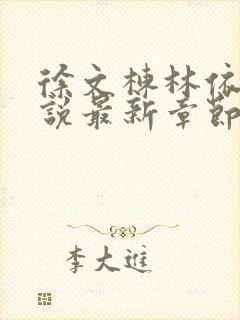 徐文棟林依
說最新章節
李大進